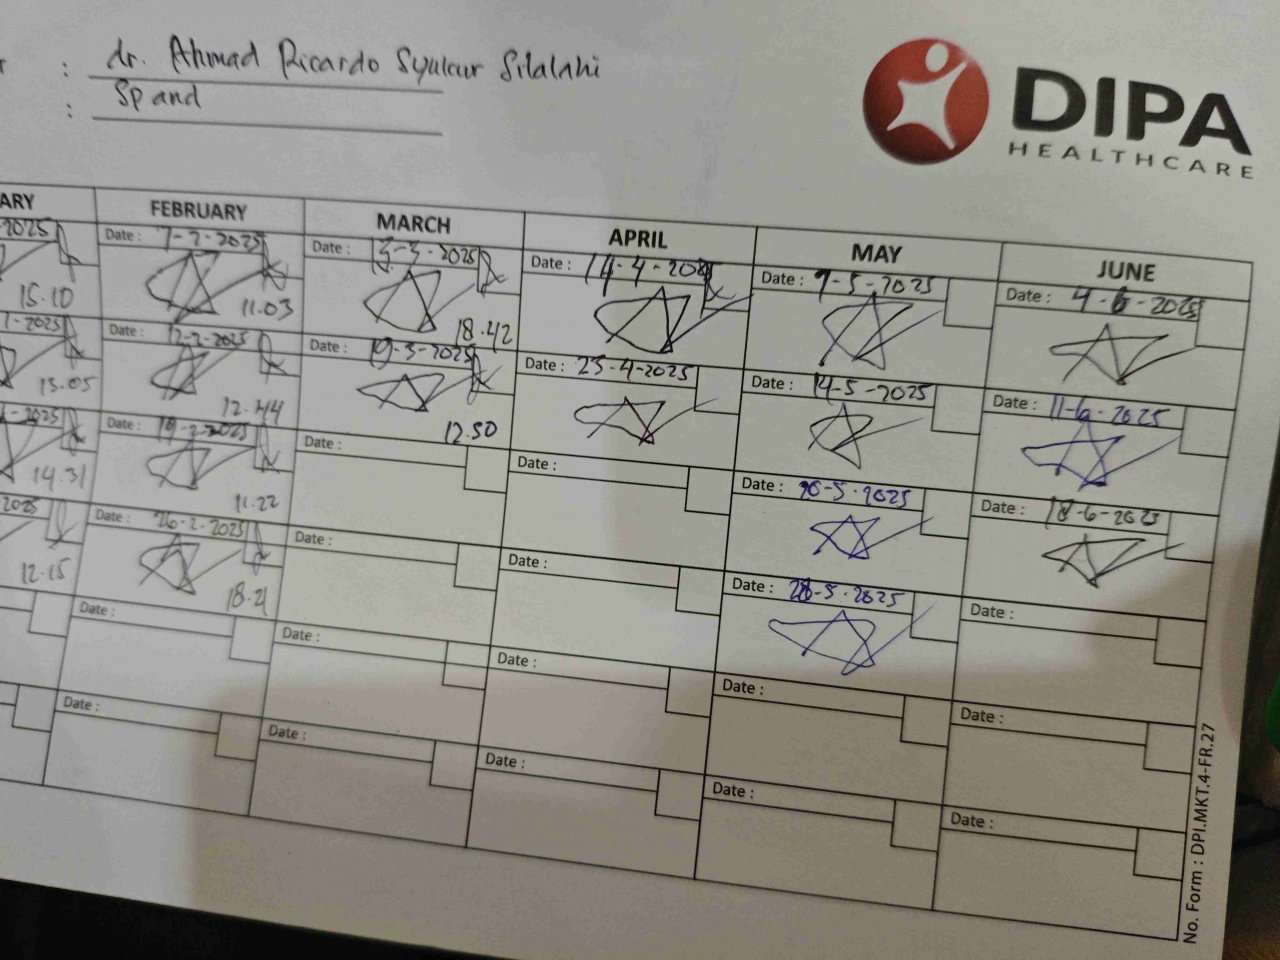 : dr. Ahmad Ricardo Syukur Silalahi
: Sp and
DIPA
HEALTHCARE
ARY
FEBRUARY
MARCH
APRIL
MAY
JUNE
2025
15.10
Date : 7-2-2025
11.03
Date : 13-3-2025
18.42
Date : 14-4-2025
Date : 7-5-2025
Date : 4-6-2025
1-2025
13.05
Date : 12-2-2025
12.44
Date : 19-3-2025
12.50
Date : 23-4-2025
Date : 14-5-2025
Date : 11-6-2025
2025
14.31
Date : 19-2-2025
11.22
Date :
Date :
Date : 20-5-2025
Date : 18-6-2025
2025
12.15
Date : 26-2-2025
18.21
Date :
Date :
Date : 28-5-2025
Date :
Date :
Date :
Date :
Date :
Date :
Date :
Date :
Date :
Date :
Date :
No. Form : DPI.MKT.4-FR.27